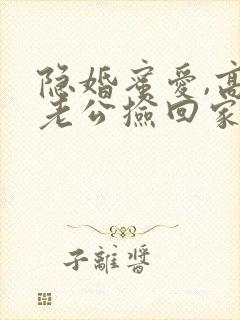 隐婚蜜爱,高
老公捡回家
子離醬